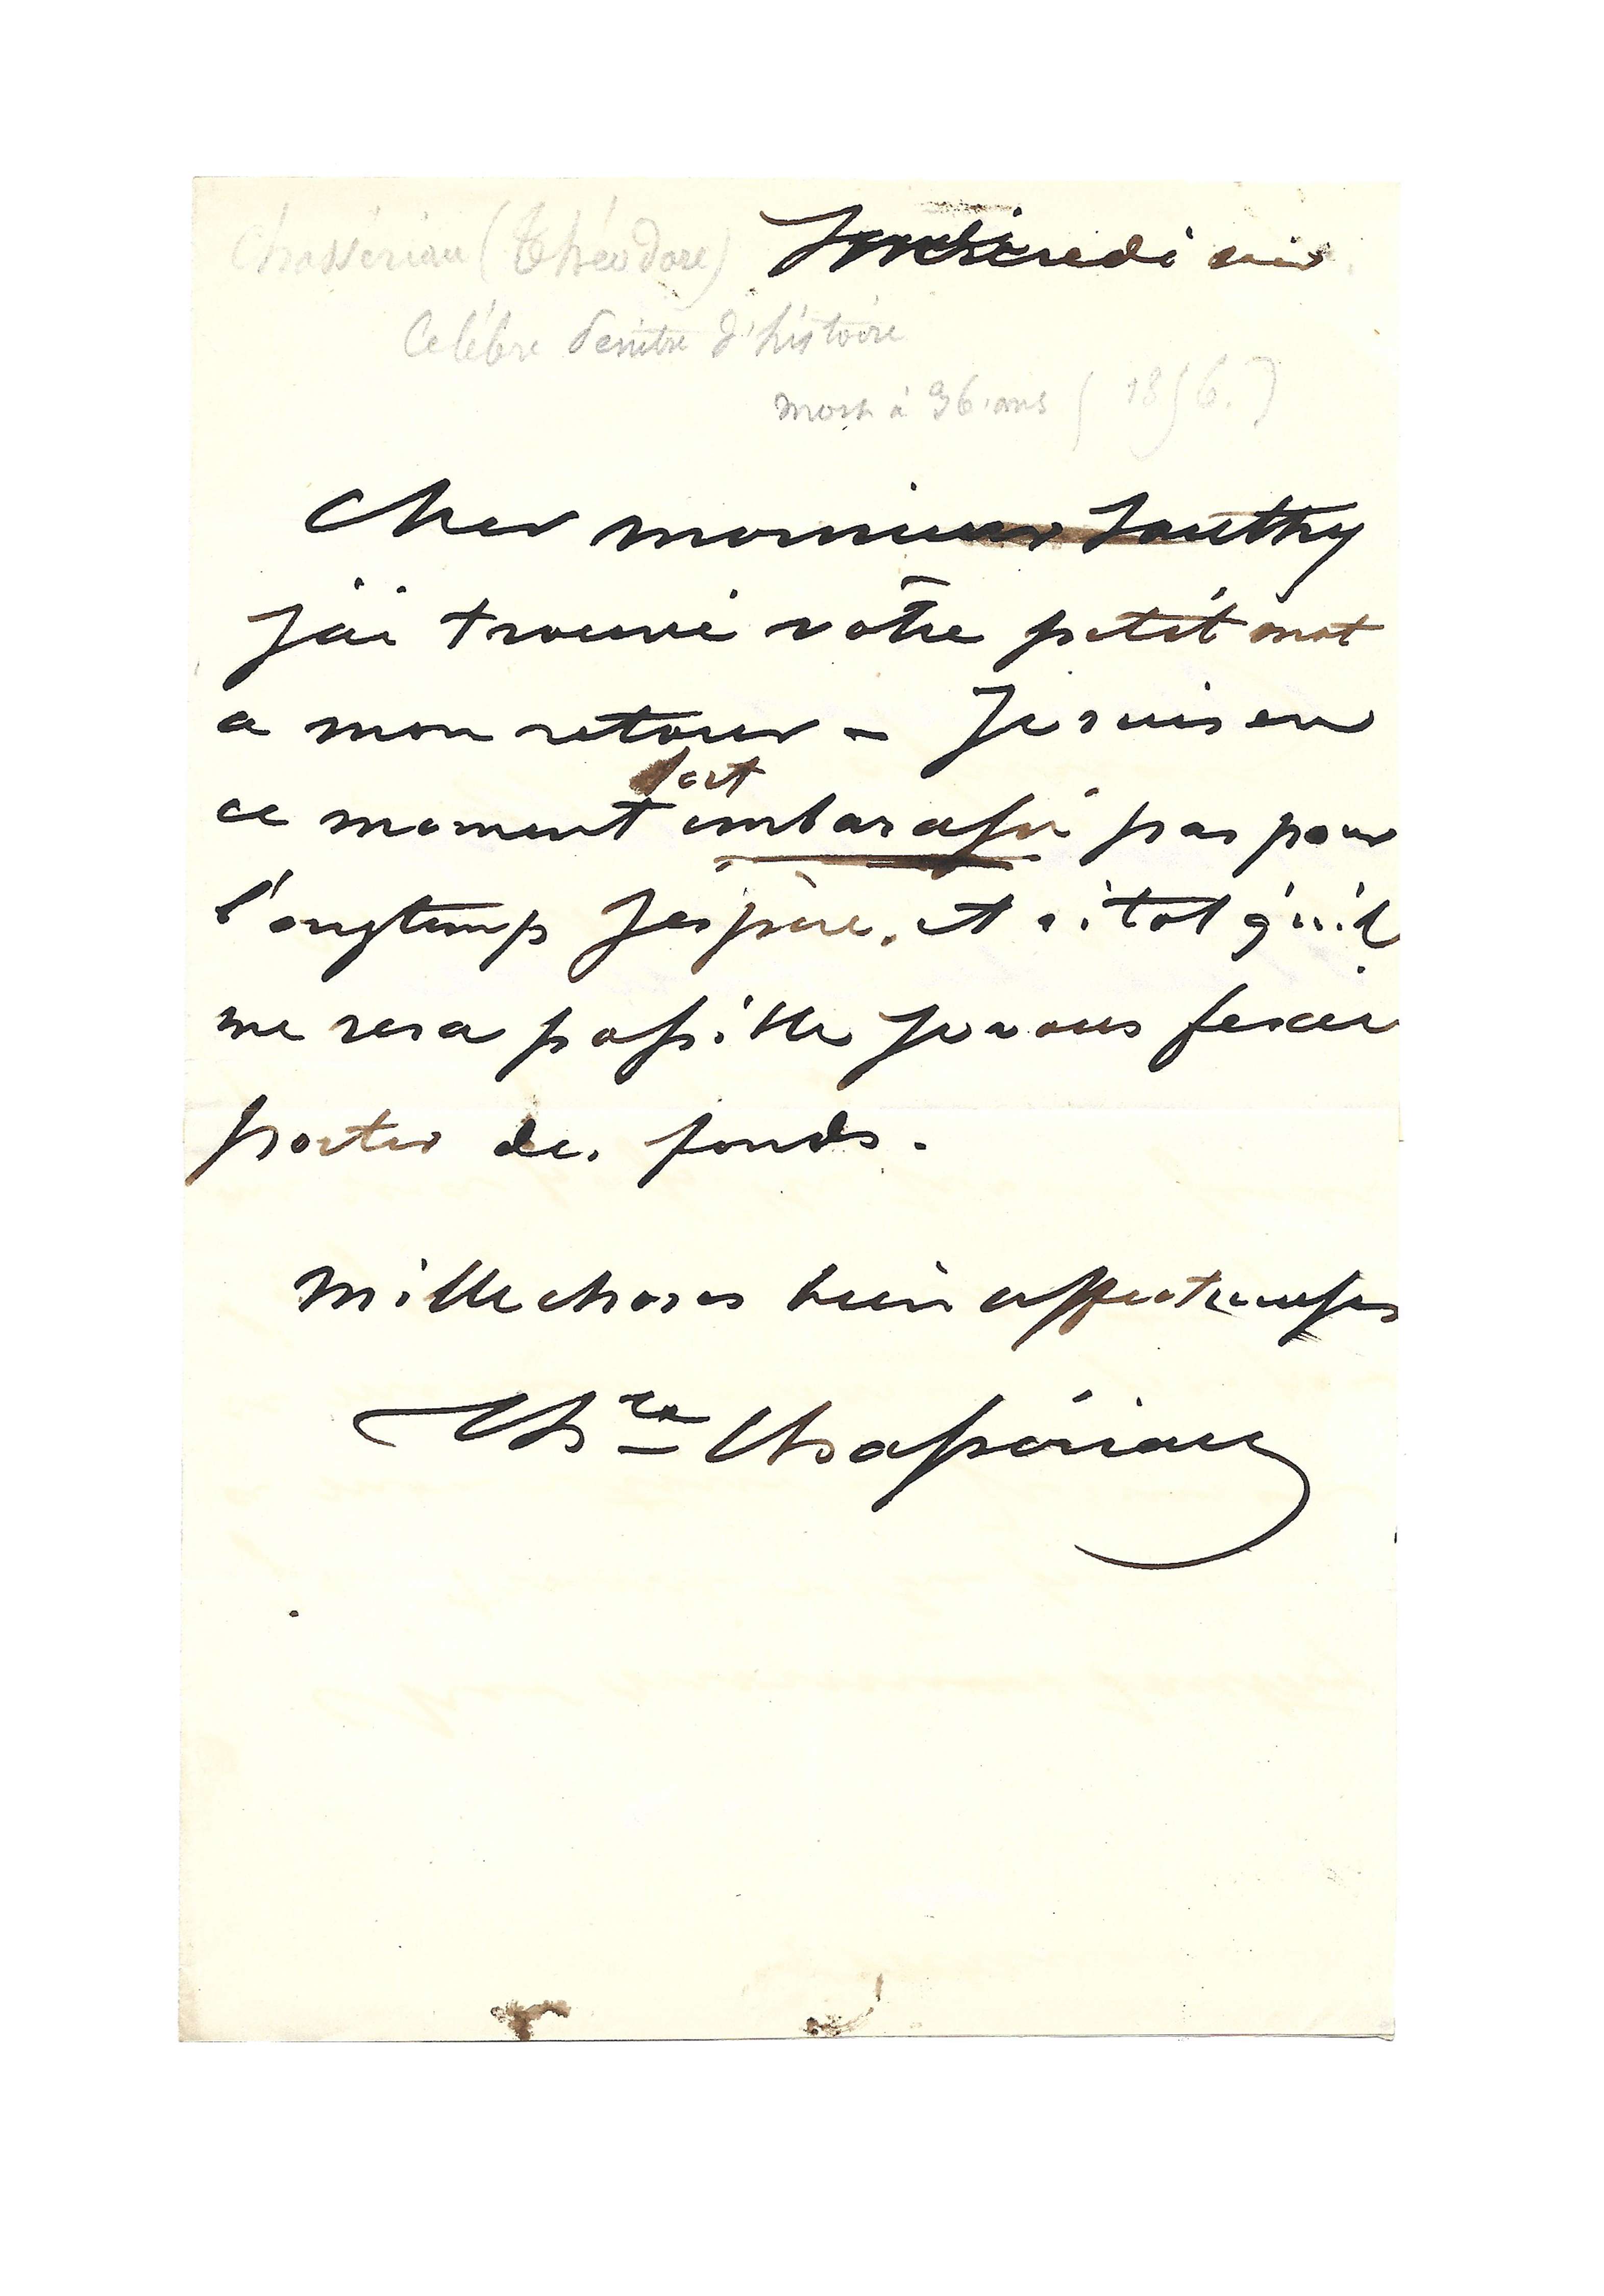 Chassériau (Théodore)
credi soir
Celébre Peintre d'histoire
mort à 36 ans (1856.)
Cher monsieur Southy
j'ai trouvé votre petit mot
a mon retour – Je suis en
fort
ce moment embarassé pas pour
longtemps J'espère, et sitot qu'il
me sera possible Je vous ferai
porter des fonds.
Mille choses bien affectueuses
Th.re Chassériau